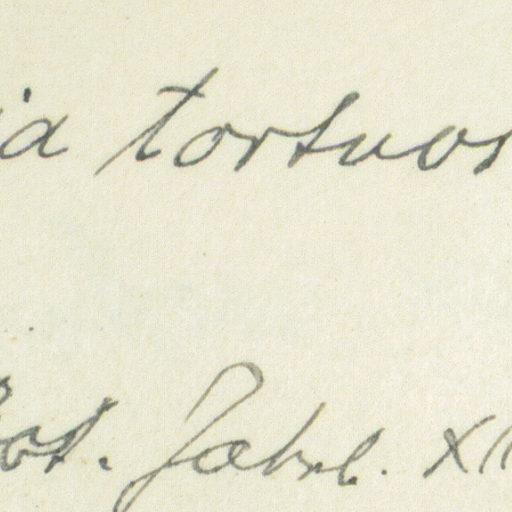 ia tortuos
Bot. Jahrb. XI